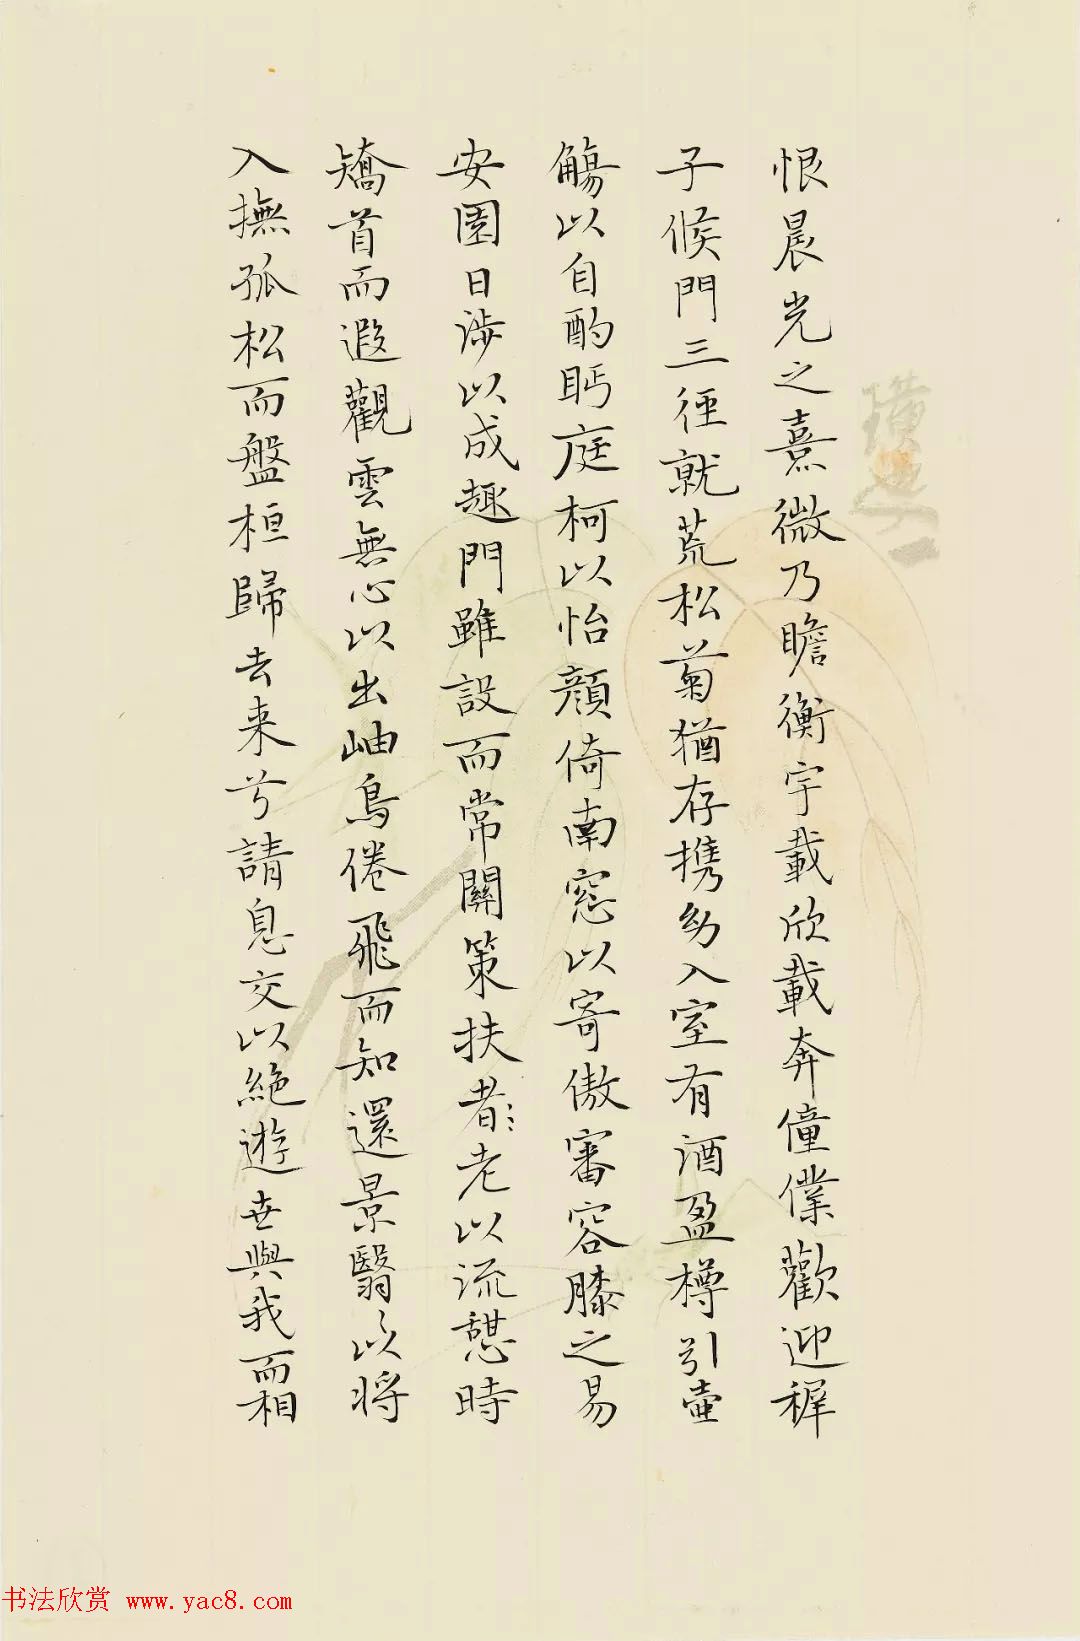 恨晨光之熹微乃瞻衡宇載欣載奔僮僕歡迎穉
子候門三徑就荒松菊猶存携幼入室有酒盈樽引壺
觴以自酌眄庭柯以怡顔倚南窓以寄傲審容膝之易
安園日涉以成趣門雖設而常關策扶者老以流憩時
矯首而遐觀雲無心以出岫鳥倦飛而知還景翳以将
入撫孤松而盤桓歸去来兮請息交以絶遊世與我而相
书法欣赏 www.yac8.com